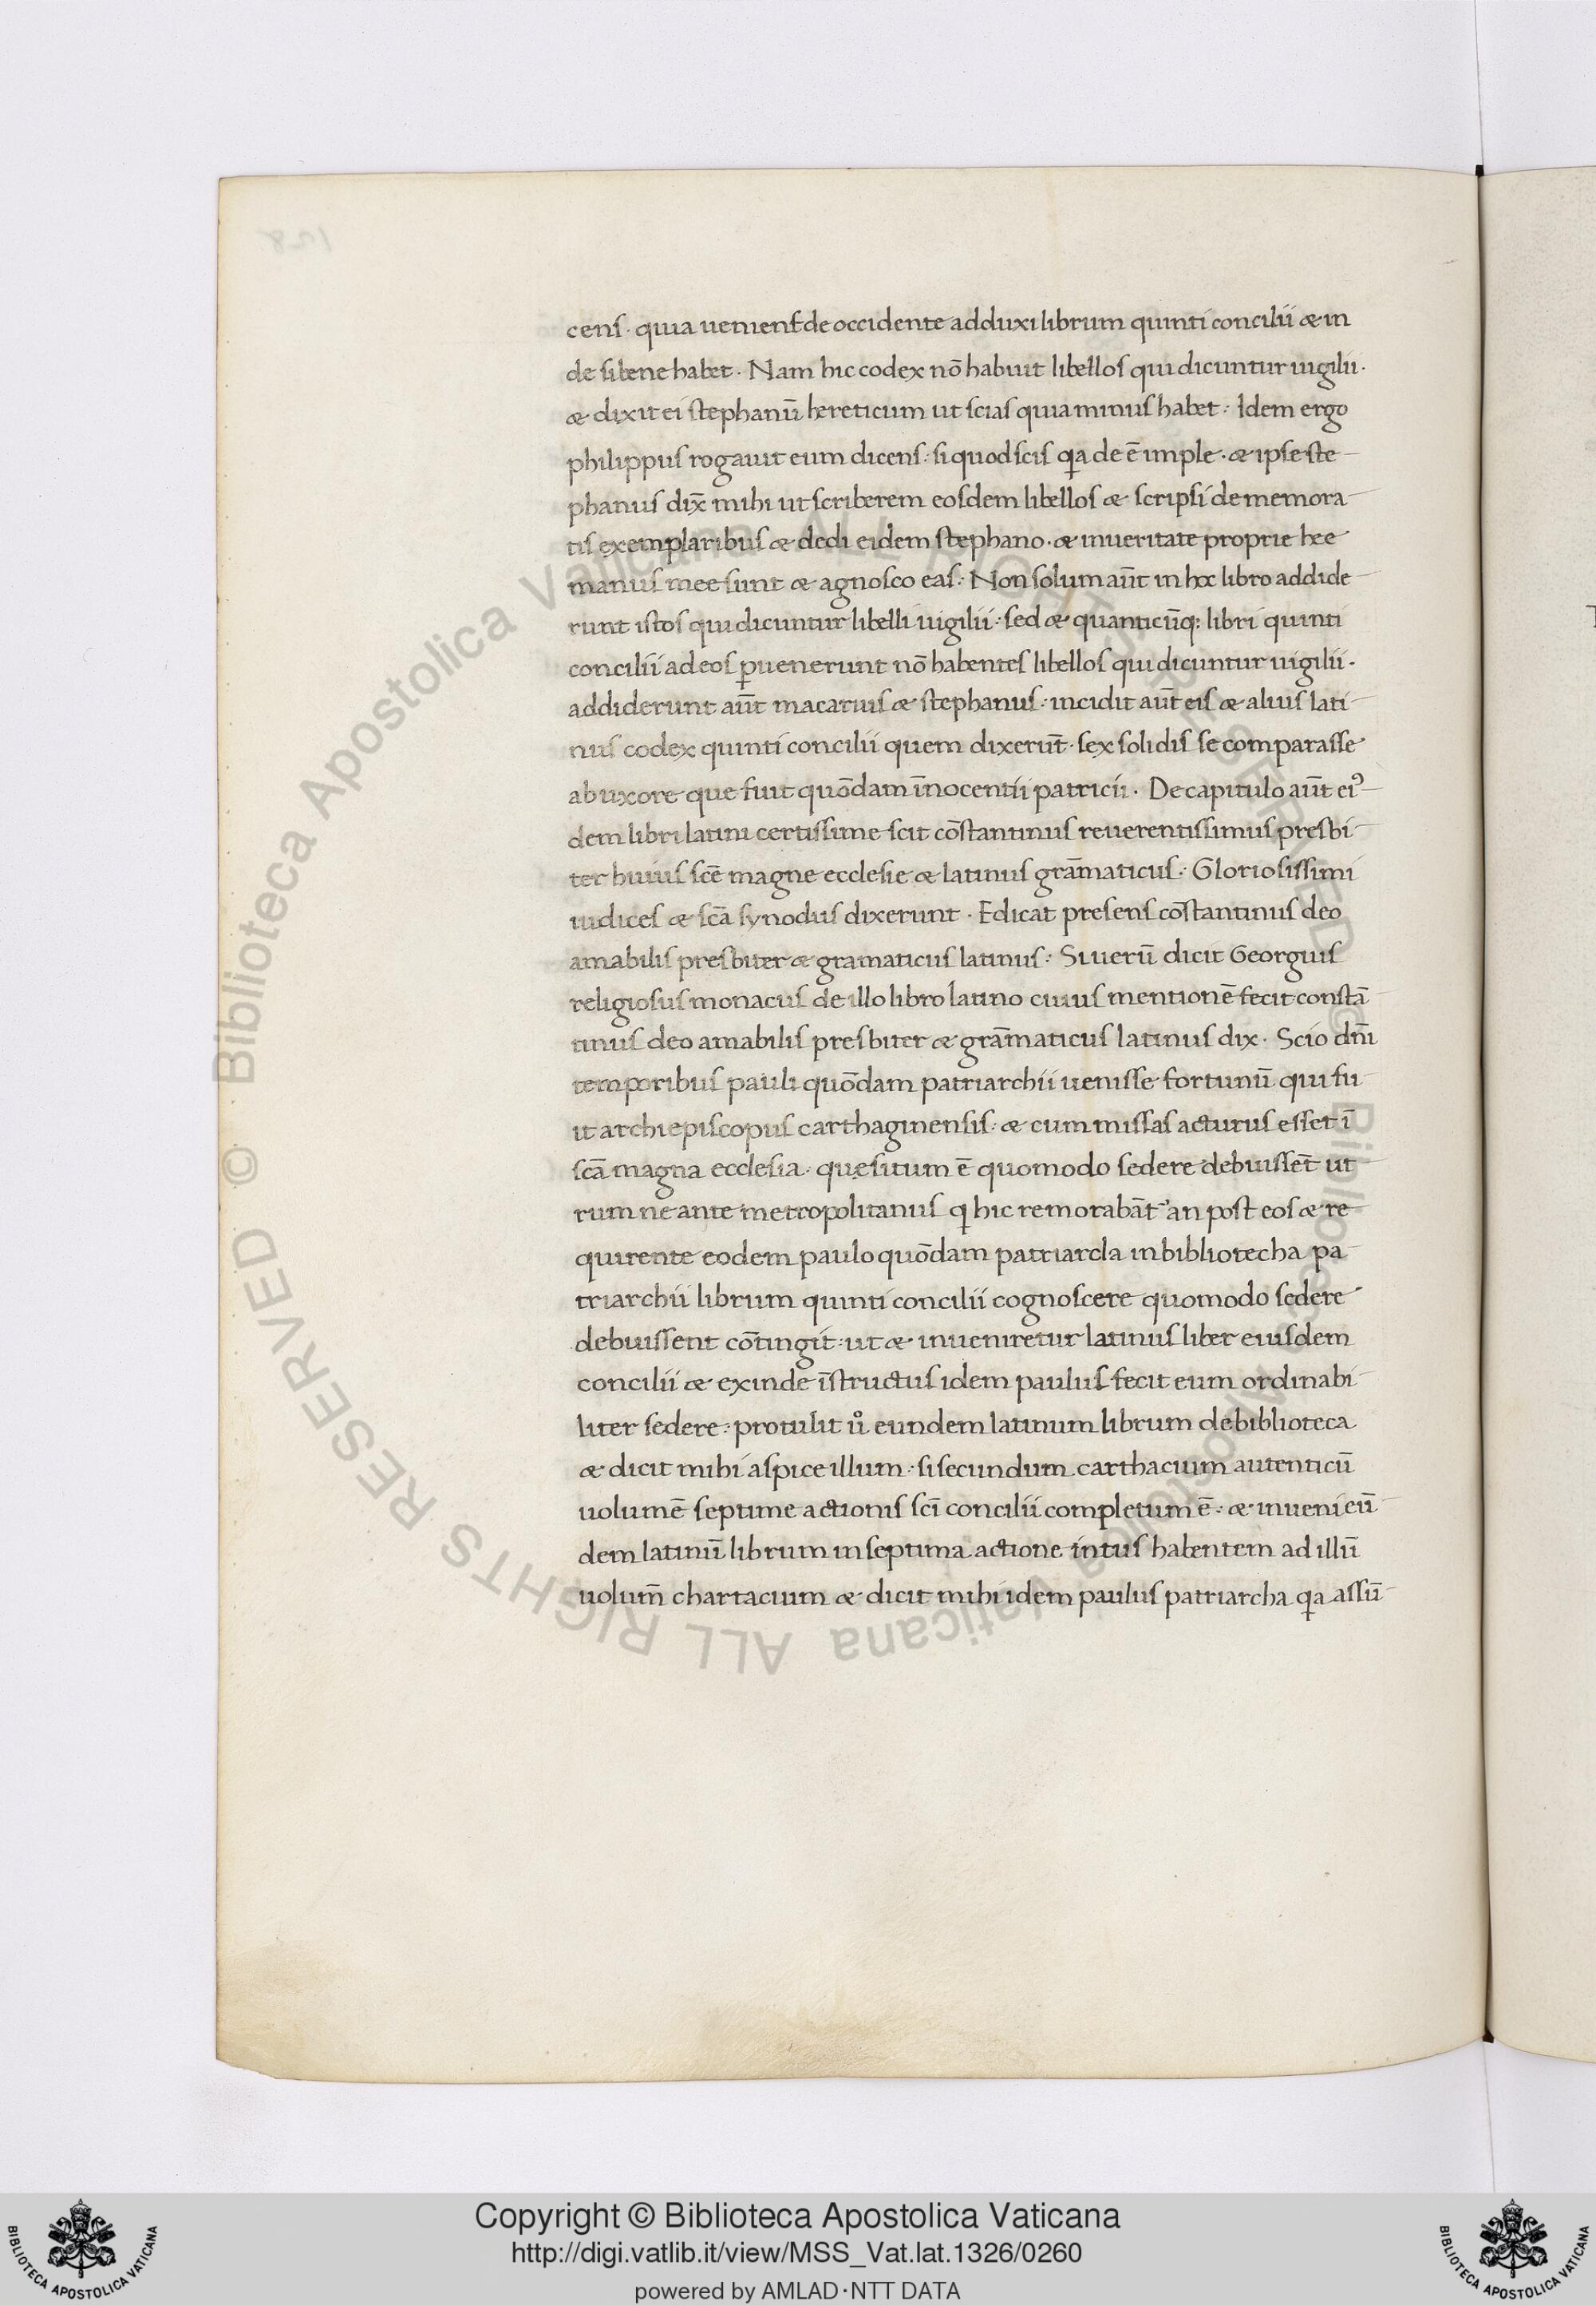 cens · quia uenienſ de occidente adduxi librum quinti concilii & in
de si bene habet · Nam hic codex nō habuit libellos qui dicuntur uigilii ·
& dixit ei stephanū hereticum ut scias quia minus habet : Idem ergo
philippus rogauit eum dicens : si quod scis qa de ē imple · & ipse ste-
phanus dix̄ mihi ut scriberem eosdem libellos & scripsi de memora-
tis exemplaribus & dedi eidem stephano · & in ueritate proprie hee
manus mee sunt & agnosco eas : Non solum aūt in hoc libro addide-
runt istos qui dicuntur libelli uigilii : sed & quanticūq: libri quinti
concilii ad eos ꝑuenerunt nō habentes libellos qui dicuntur uigilii ·
addiderunt aūt macarius & stephanus : incidit aūt eis & alius lati-
nus codex quinti concilii quem dixerūt · sex solidis se comparasse
ab uxore que fuit quōdam īnocentii patricii · De capitulo aūt eiꝰ-
dem libri latini certissime scit cōstantinus reuerentissimus presbi-
ter huius scē magne ecclesie & latinus grāmaticus : Gloriosissimi
iudices & scā synodus dixerunt · Edicat presens cōstantinus deo
amabilis presbiter & gramaticus latinus : Si uerū dicit Georgius
religiosus monacus de illo libro latino cuius mentionē fecit constā-
tinus deo amabilis presbiter & grāmaticus latinus dix · Scio dn̄i
temporibus pauli quōdam patriarchii uenisse fortunū qui fu-
it archiepiscopus carthaginensis : & cum missas acturus esset ī
scā magna ecclesia · quesitum ē quomodo sedere debuissēt ut-
rum ne ante metropolitanus q hic remorabāt an post eos & re-
quirente eodem paulo quōdam patriarcla in bibliotecha pa-
triarchii librum quinti concilii cognoscere quomodo sedere
debuissent cōtingit : ut & inueniretur latinus liber eiusdem
concilii & exinde īstructus idem paulus fecit eum ordinabi-
liter sedere : protulit uͦ eundem latinum librum de biblioteca
& dicit mihi aspice illum : si secundum carthacium autenticū
uolumē septime actionis sci concilii completum ē : & inueni eū-
dem latinū librum in septima actione intus habentem ad illū
uolum̄ chartacium & dicit mihi idem paulus patriarcha qa assū-
Copyright © Biblioteca Apostolica Vaticana
http://digi.vatlib.it/view/MSS_Vat.lat.1326/0260
powered by AMLAD·NTT DATA
BIBLIOTECA APOSTOLICA VATICANA
BIBLIOTECA APOSTOLICA VATICANA
© Biblioteca Apostolica Vaticana ALL RIGHTS RESERVED
© Biblioteca Apostolica Vaticana ALL RIGHTS RESERVED